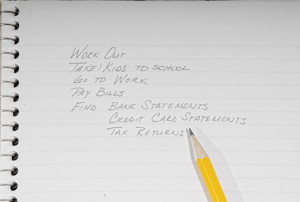 Work Out
Take Kids to school
Go to Work
Pay Bills
Find Bank Statements
Credit Card Statements
Tax Returns